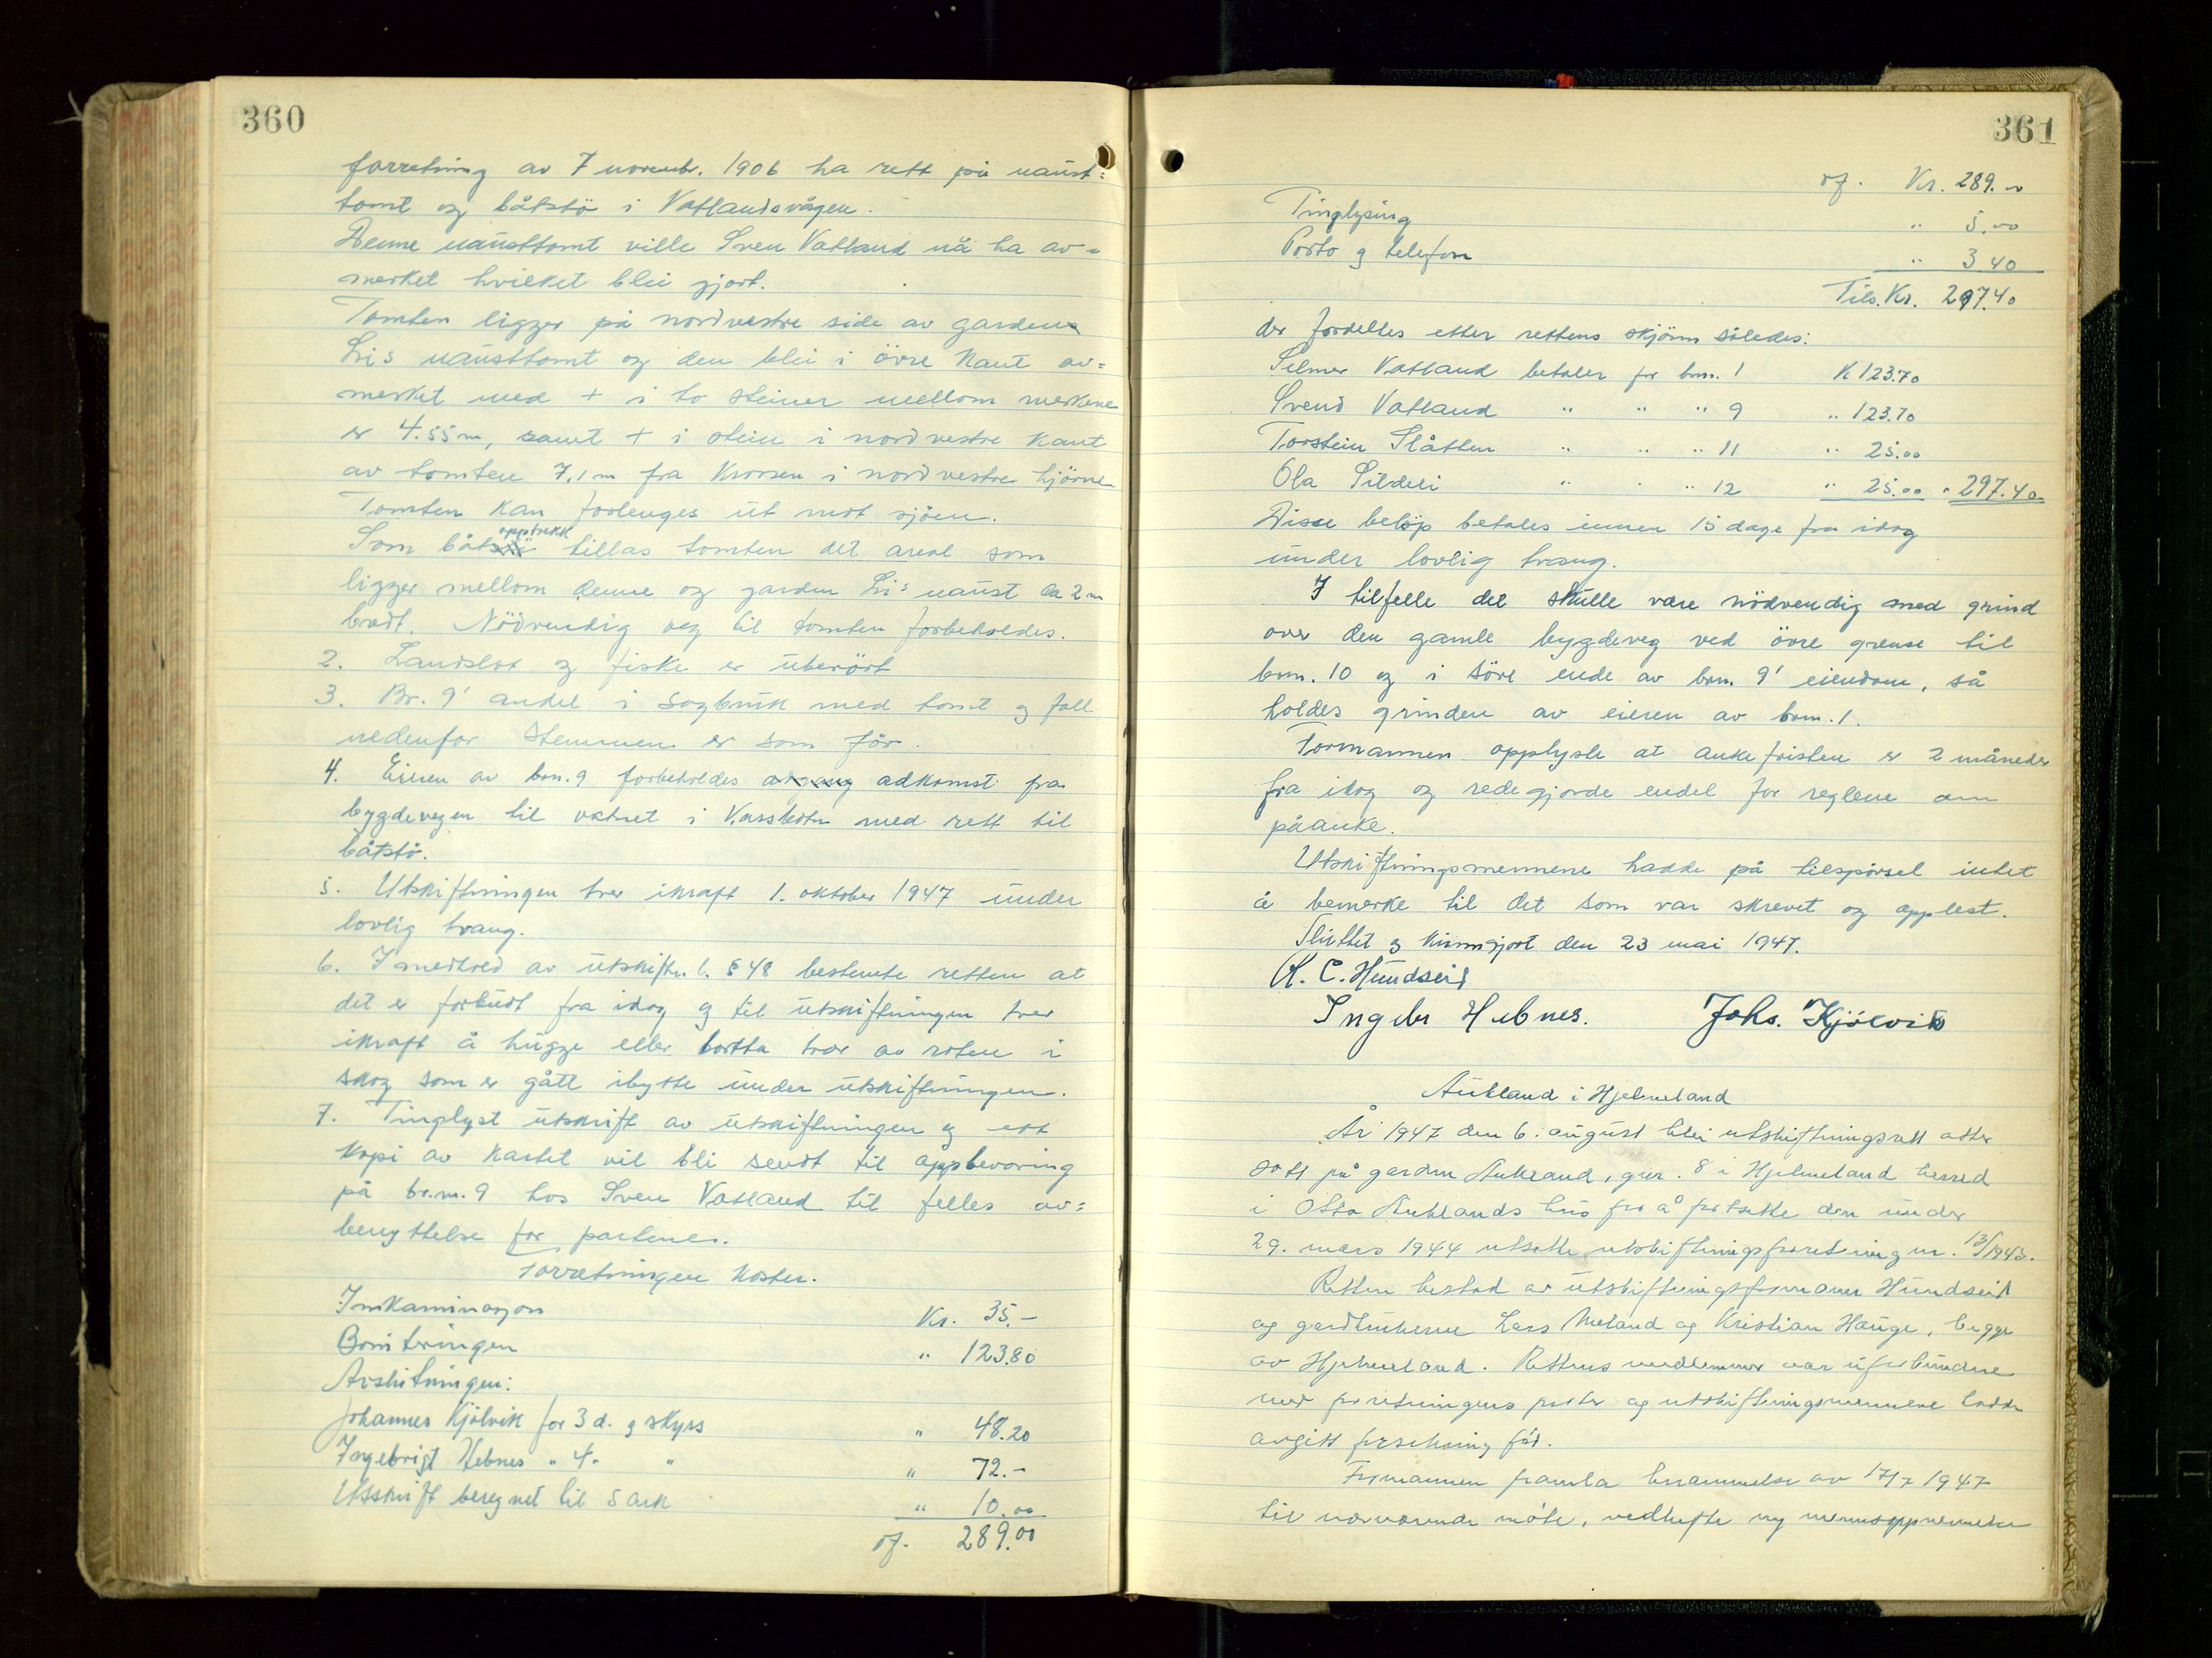 360
forretning av 7 novembr. 1906 ha rett på naust-
tomt og båtstö i Vatlandsvågen.
Denne nausttomt ville Sven Vatland nå ha av-
merket hvilket blei gjort.
Tomten ligger på nordvestre side av gardens
Lis nausttomt og den blei i övre kant av-
merket med + i to steiner mellom merkene
er 4.55 m, samt + i stein i nordvestre kant
av tomten 7,1 m fra krossen i nordvestre hjörne
Tomten kan forlenges ut mot sjöen.
Som båtopptrekk tillas tomten det areal som
ligger mellom denne og garden Lis naust ca 2 m
bredt. Nödvendig veg til tomten forbeholdes.
2. Landslot og fiske er uberört
3. Br. 9' andel i sagbruk med tomt og fall
nedenfor stemmen er som för.
4. Eieren av brn. 9 forbeholdes adgang adkomst fra
bygdevegen til vatnet i Vassbotn med rett til
båtstö.
5. Utskiftningen trer ikraft 1. oktober 1947 under
lovlig tvang.
6. I medhold av utskiftn. l. § 48 bestemte retten at
det er forbudt fra idag og til utskiftningen trer
ikraft å hugge eller bortta trær av roten i
skog som er gått ibytte under utskiftningen.
7. Tinglyst utskrift av utskiftningen og ett
kopi av kartet vil bli sendt til oppbevaring
på br.nr. 9 hos Sven Vatland til felles av-
benyttelse for partene.
Forretningen koster.
Inkaminasjon Kr. 35.-
Boniteringen " 123.80
Avslutningen:
Johannes Kjölvik for 3 d. og skyss " 48.20
Ingebrigt Hebnes " 4 " " " 72.-
Utskrift beregnet til 5 ark " 10.00
of. 289.00
361
of. Kr. 289.00
Tinglysing " 5.00
Porto og telefon " 3.40
Tils. Kr. 297.40
der fordelles etter rettens skjönn således:
Selmer Vatland betaler for brn. 1 K 123.70
Svend Vatland " " " 9 " 123.70
Torstein Slåtten " " " 11 " 25.00
Ola Sildeli " " " 12 " 25.00 " 297.40
Disse belöp betales innen 15 dage fra idag
under lovlig tvang.
I tilfelle det skulle være nödvendig med grind
over den gamle bygdeveg ved övre grense til
brn. 10 og i söre ende av brn. 9' eiendom, så
holdes grinden av eieren av brn. 1.
Formannen opplyste at ankefristen er 2 måneder
fra idag og redegjorde endel for reglene om
påanke.
Utskiftningsmennene hadde på tilspörsel intet
å bemerke til det som var skrevet og opplest.
Sluttet og kunngjort den 23 mai 1947.
K. C. Hundseid
Ingebr Hebnes. Johs. Kjölvik
Aukland i Hjelmeland
År 1947 den 6. august blei utskiftningsrett atter
satt på garden Aukland, gnr. 8 i Hjelmeland herred
i Otto Auklands hus for å fortsette den under
29. mars 1944 utsatte utskiftningsforretning nr. 13/1943.
Retten bestod av utskiftningsformann Hundseid
og gardbrukerne Lars Meland og Kristian Hauge, begge
av Hjelmeland. Rettens medlemmer var uforbundne
med forretningens parter og utskiftningsmennene hadde
avgitt forsikring för.
Formannen framla berammelse av 17/7 1947
til nærværende möte, vedhefte ny mennsoppnevnelse